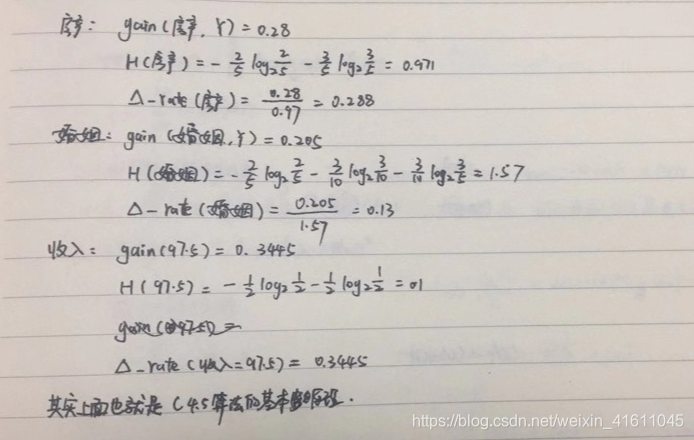 房产: gain(房产, Y) = 0.28
H(房产) = - 2/5 log₂ 2/5 - 3/5 log₂ 3/5 = 0.971
Δ-rate(房产) = 0.28/0.97 = 0.288
婚姻: gain(婚姻, Y) = 0.205
H(婚姻) = - 2/5 log₂ 2/5 - 3/10 log₂ 3/10 - 3/10 log₂ 3/5 = 1.57
Δ-rate(婚姻) = 0.205/1.57 = 0.13
收入: gain(97.5) = 0.3445
H(97.5) = - 1/2 log₂ 1/2 - 1/2 log₂ 1/2 = 1
Δ-rate(收入=97.5) = 0.3445
其实上面也就是C4.5算法的基本流程.
https://blog.csdn.net/weixin_41611045